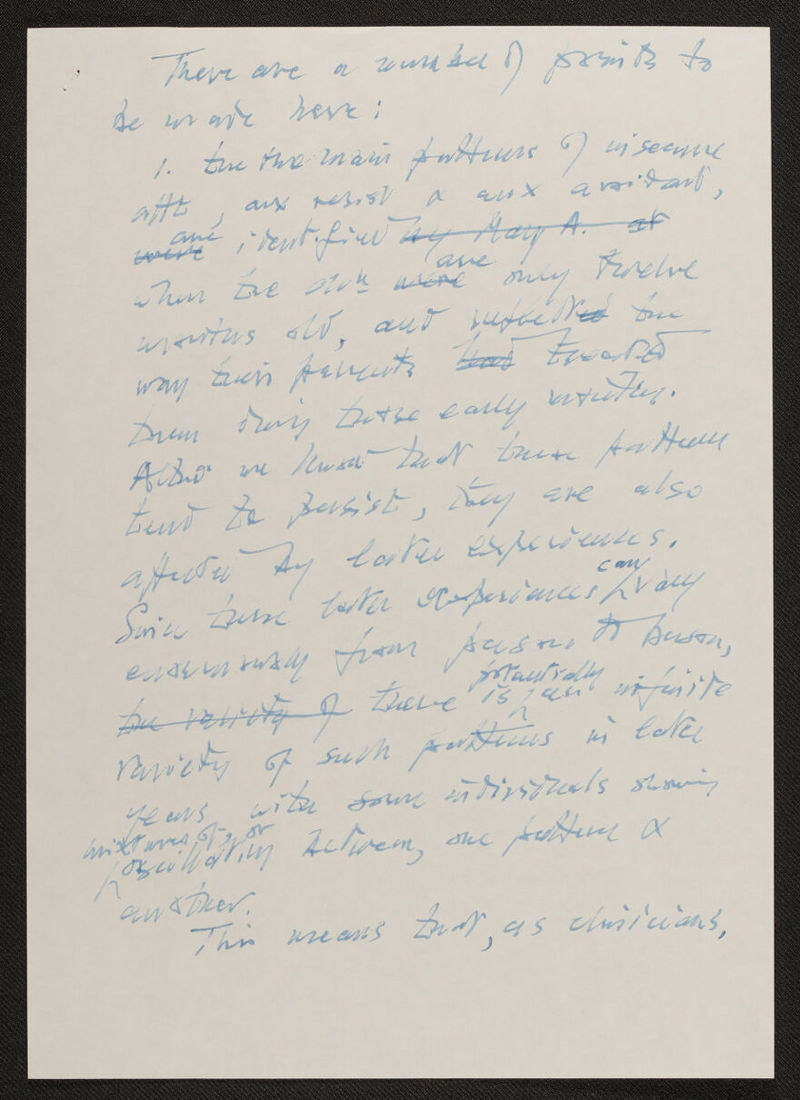 There are a number of points to
be made here:
1. the two main patterns of insecure
att, anx resist & anx avoidant,
were are identified by Mary A. at
when the chn were are only twelve
months old, and reflected the
way their parents had treated
them during these early months.
Altho' we know that these patterns
tend to persist, they are also
affected by later experiences.
Since these later experiences can vary
enormously from person to person,
the variety of there is potentially an infinite
variety of such patterns in later
years with some individuals showing
mixtures of, or
oscillating between, one pattern &
another.
This means that, as clinicians,